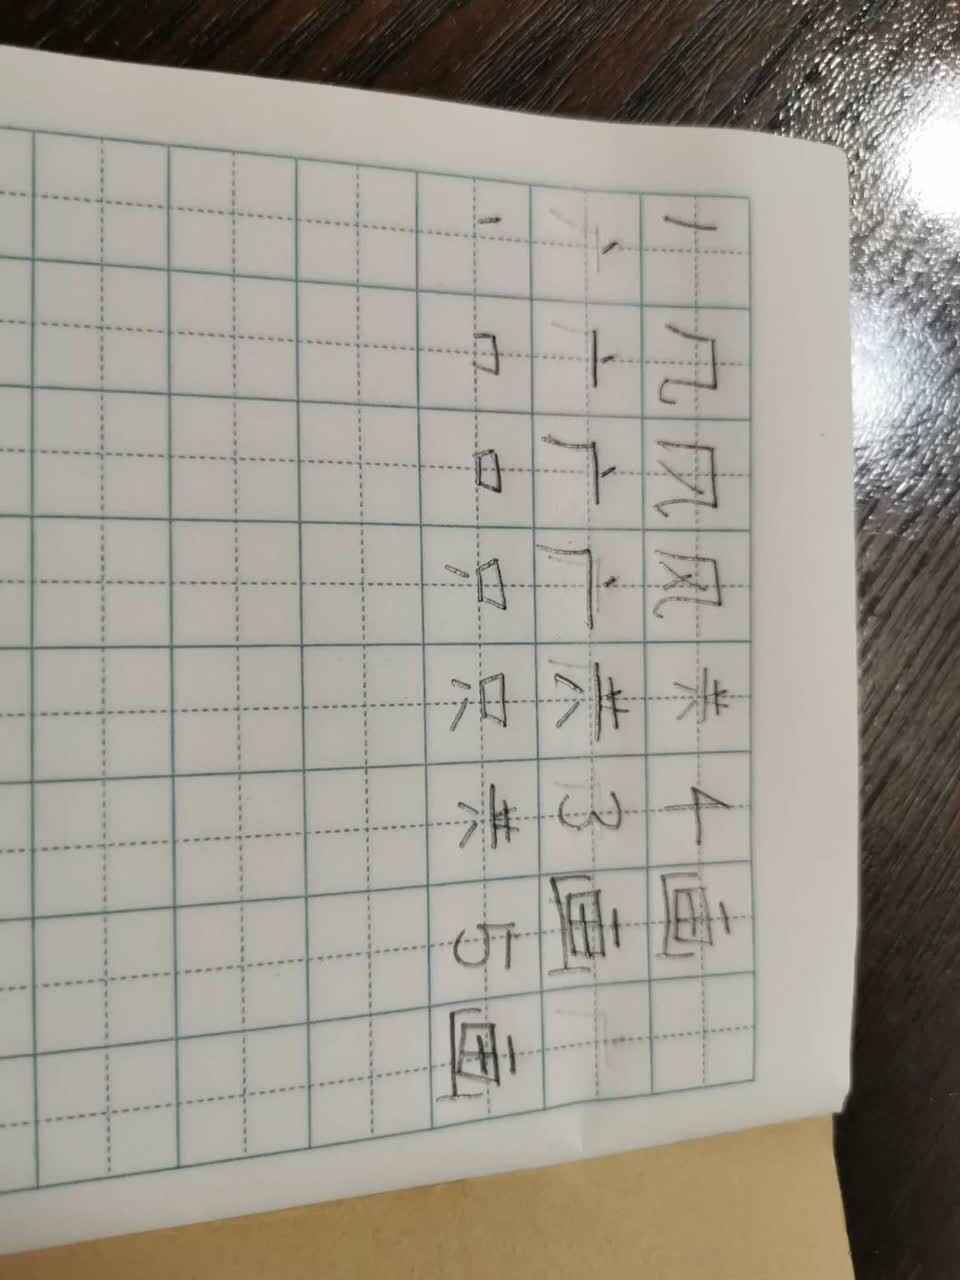 丿 几 风 共 4 画
丶 亠 广 广 共 3 画
丨 冂 口 只 共 5 画